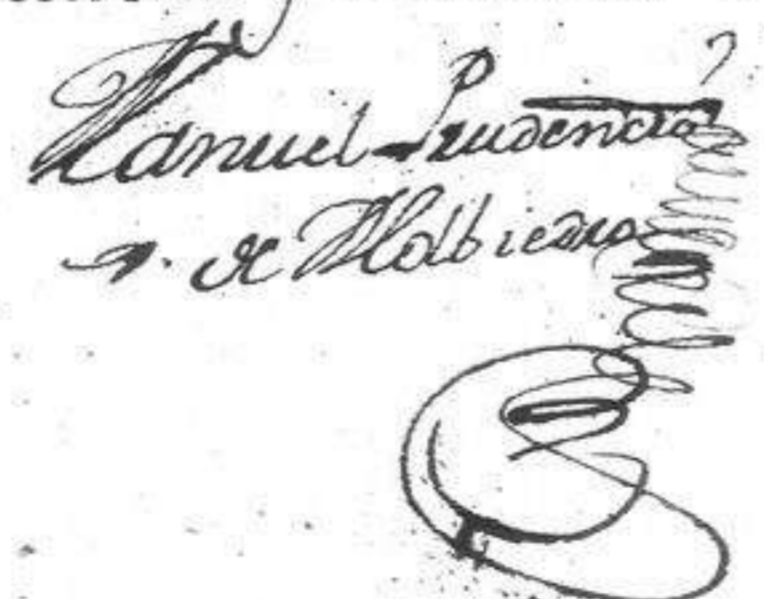 Manuel Prudencio
de Molbiedro